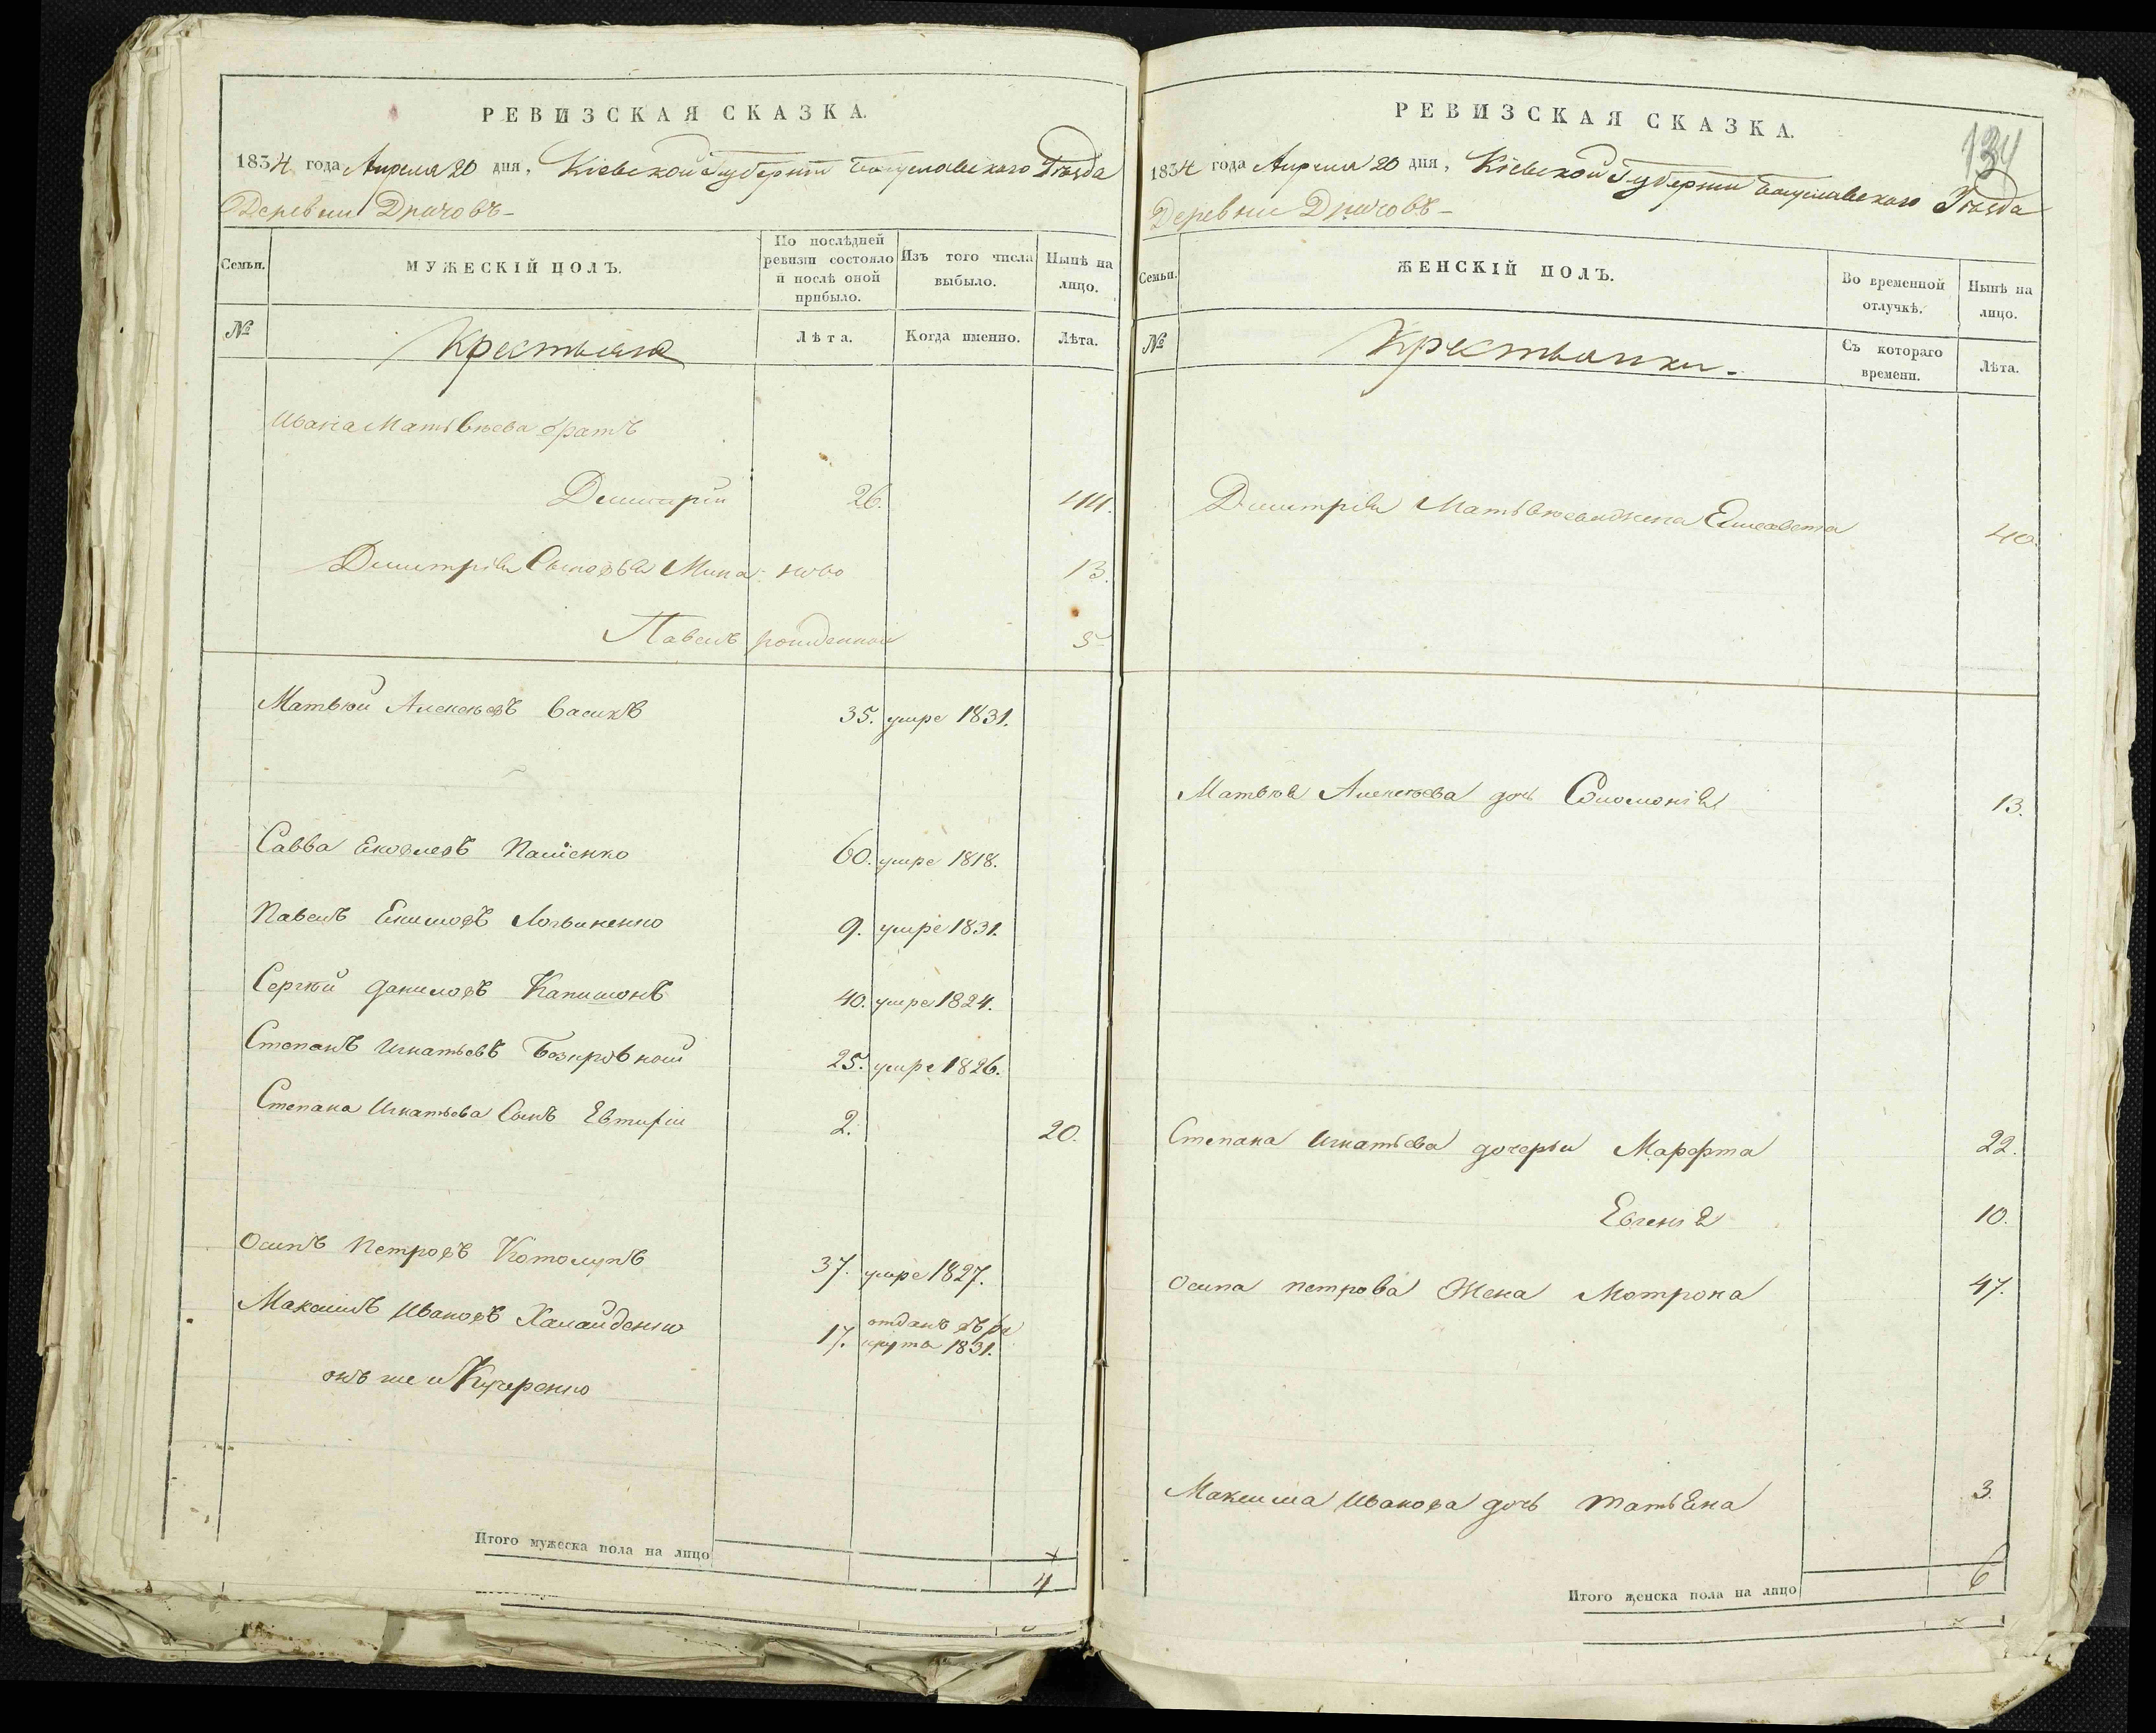 РЕВИЗСКАЯ СКАЗКА.
1834 года Апреля 20 дня, Кіевской Губерніи Богуславского Уѣзда
Деревни Дричовъ-
Семьи.
МУЖЕСКІЙ ПОЛЪ.
По послѣдней ревизіи состояло и послѣ оной прибыло.
Изъ того числа выбыло.
Нынѣ на лицо.
№
Крестьяне
Лѣта.
Когда именно.
Лѣта.
Ивана Матвѣева братъ
Димитрій 26. 44.
Димитрія Сыновья Мина ново 13.
Павелъ рожденной 5
Матвѣй Алексѣевъ Васикъ 35. умре 1831.
Савва Яковлевъ Пашенко 60. умре 1818.
Павелъ Екимовъ Логвиненко 9. умре 1831.
Сергѣй Даниловъ Капишонъ 40. умре 1824.
Степанъ Игнатьевъ 25. умре 1826.
Степана Игнатьева Сынъ Евтифій 2. 20.
Осипъ Петровъ Котолупъ 37. умре 1827.
Максимъ Ивановъ Халайденко 17. отданъ въ ре
крута 1831.
онъ же и Кучеренко
Итого мужеска пола на лицо 4
РЕВИЗСКАЯ СКАЗКА.
134
1834 года Апреля 20 дня, Кіевской Губерніи Богуславского Уѣзда
Деревни Дричовъ-
Семьи.
ЖЕНСКІЙ ПОЛЪ.
Во временной отлучкѣ.
Нынѣ на лицо.
№
Крестьянки.
Съ котораго времени.
Лѣта.
Димитрія Матвѣева жена Елисавета 40.
Матвѣя Алексѣева дочь Соломонія 13.
Степана Игнатьева дочерьи Марфта 22.
Евгенія 10.
Осипа петрова Жена Мотрона 47.
Максима Иванова дочь татьяна 3.
Итого женска пола на лицо 6